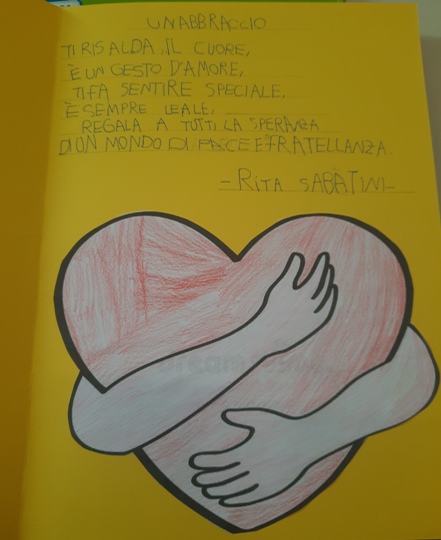 UN ABBRACCIO
TI RISALDA IL CUORE,
È UN GESTO D'AMORE,
TI FA SENTIRE SPECIALE,
È SEMPRE LEALE,
REGALA A TUTTI LA SPERANZA
DI UN MONDO DI PACE E FRATELLANZA.
- RITA SABATINI -